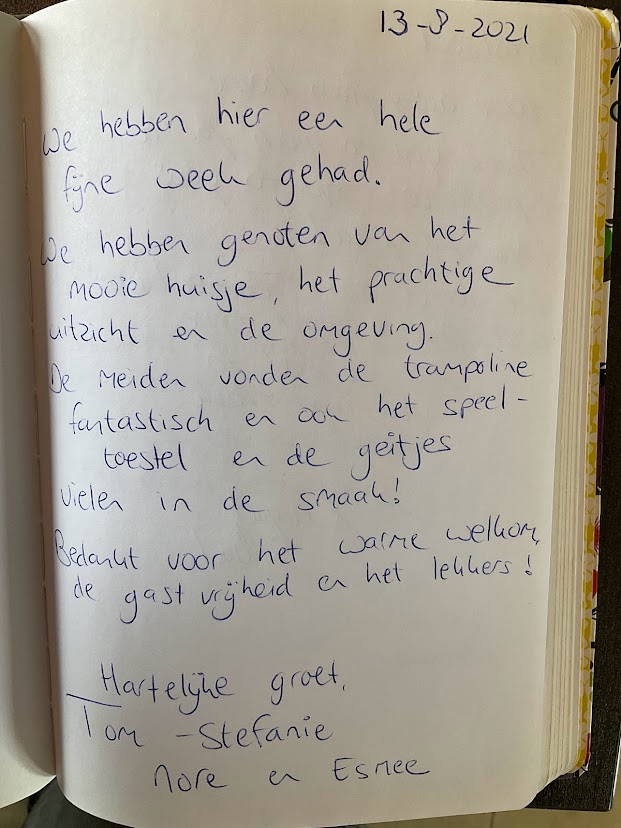 13-8-2021
We hebben hier een hele
fijne week gehad.
We hebben genoten van het
mooie huisje, het prachtige
uitzicht en de omgeving.
De meiden vonden de trampoline
fantastisch en ook het speel-
toestel en de geitjes
vielen in de smaak!
Bedankt voor het warme welkom,
de gastvrijheid en het lekkers!
Hartelijke groet,
Tom - Stefanie
Nore en Esmee